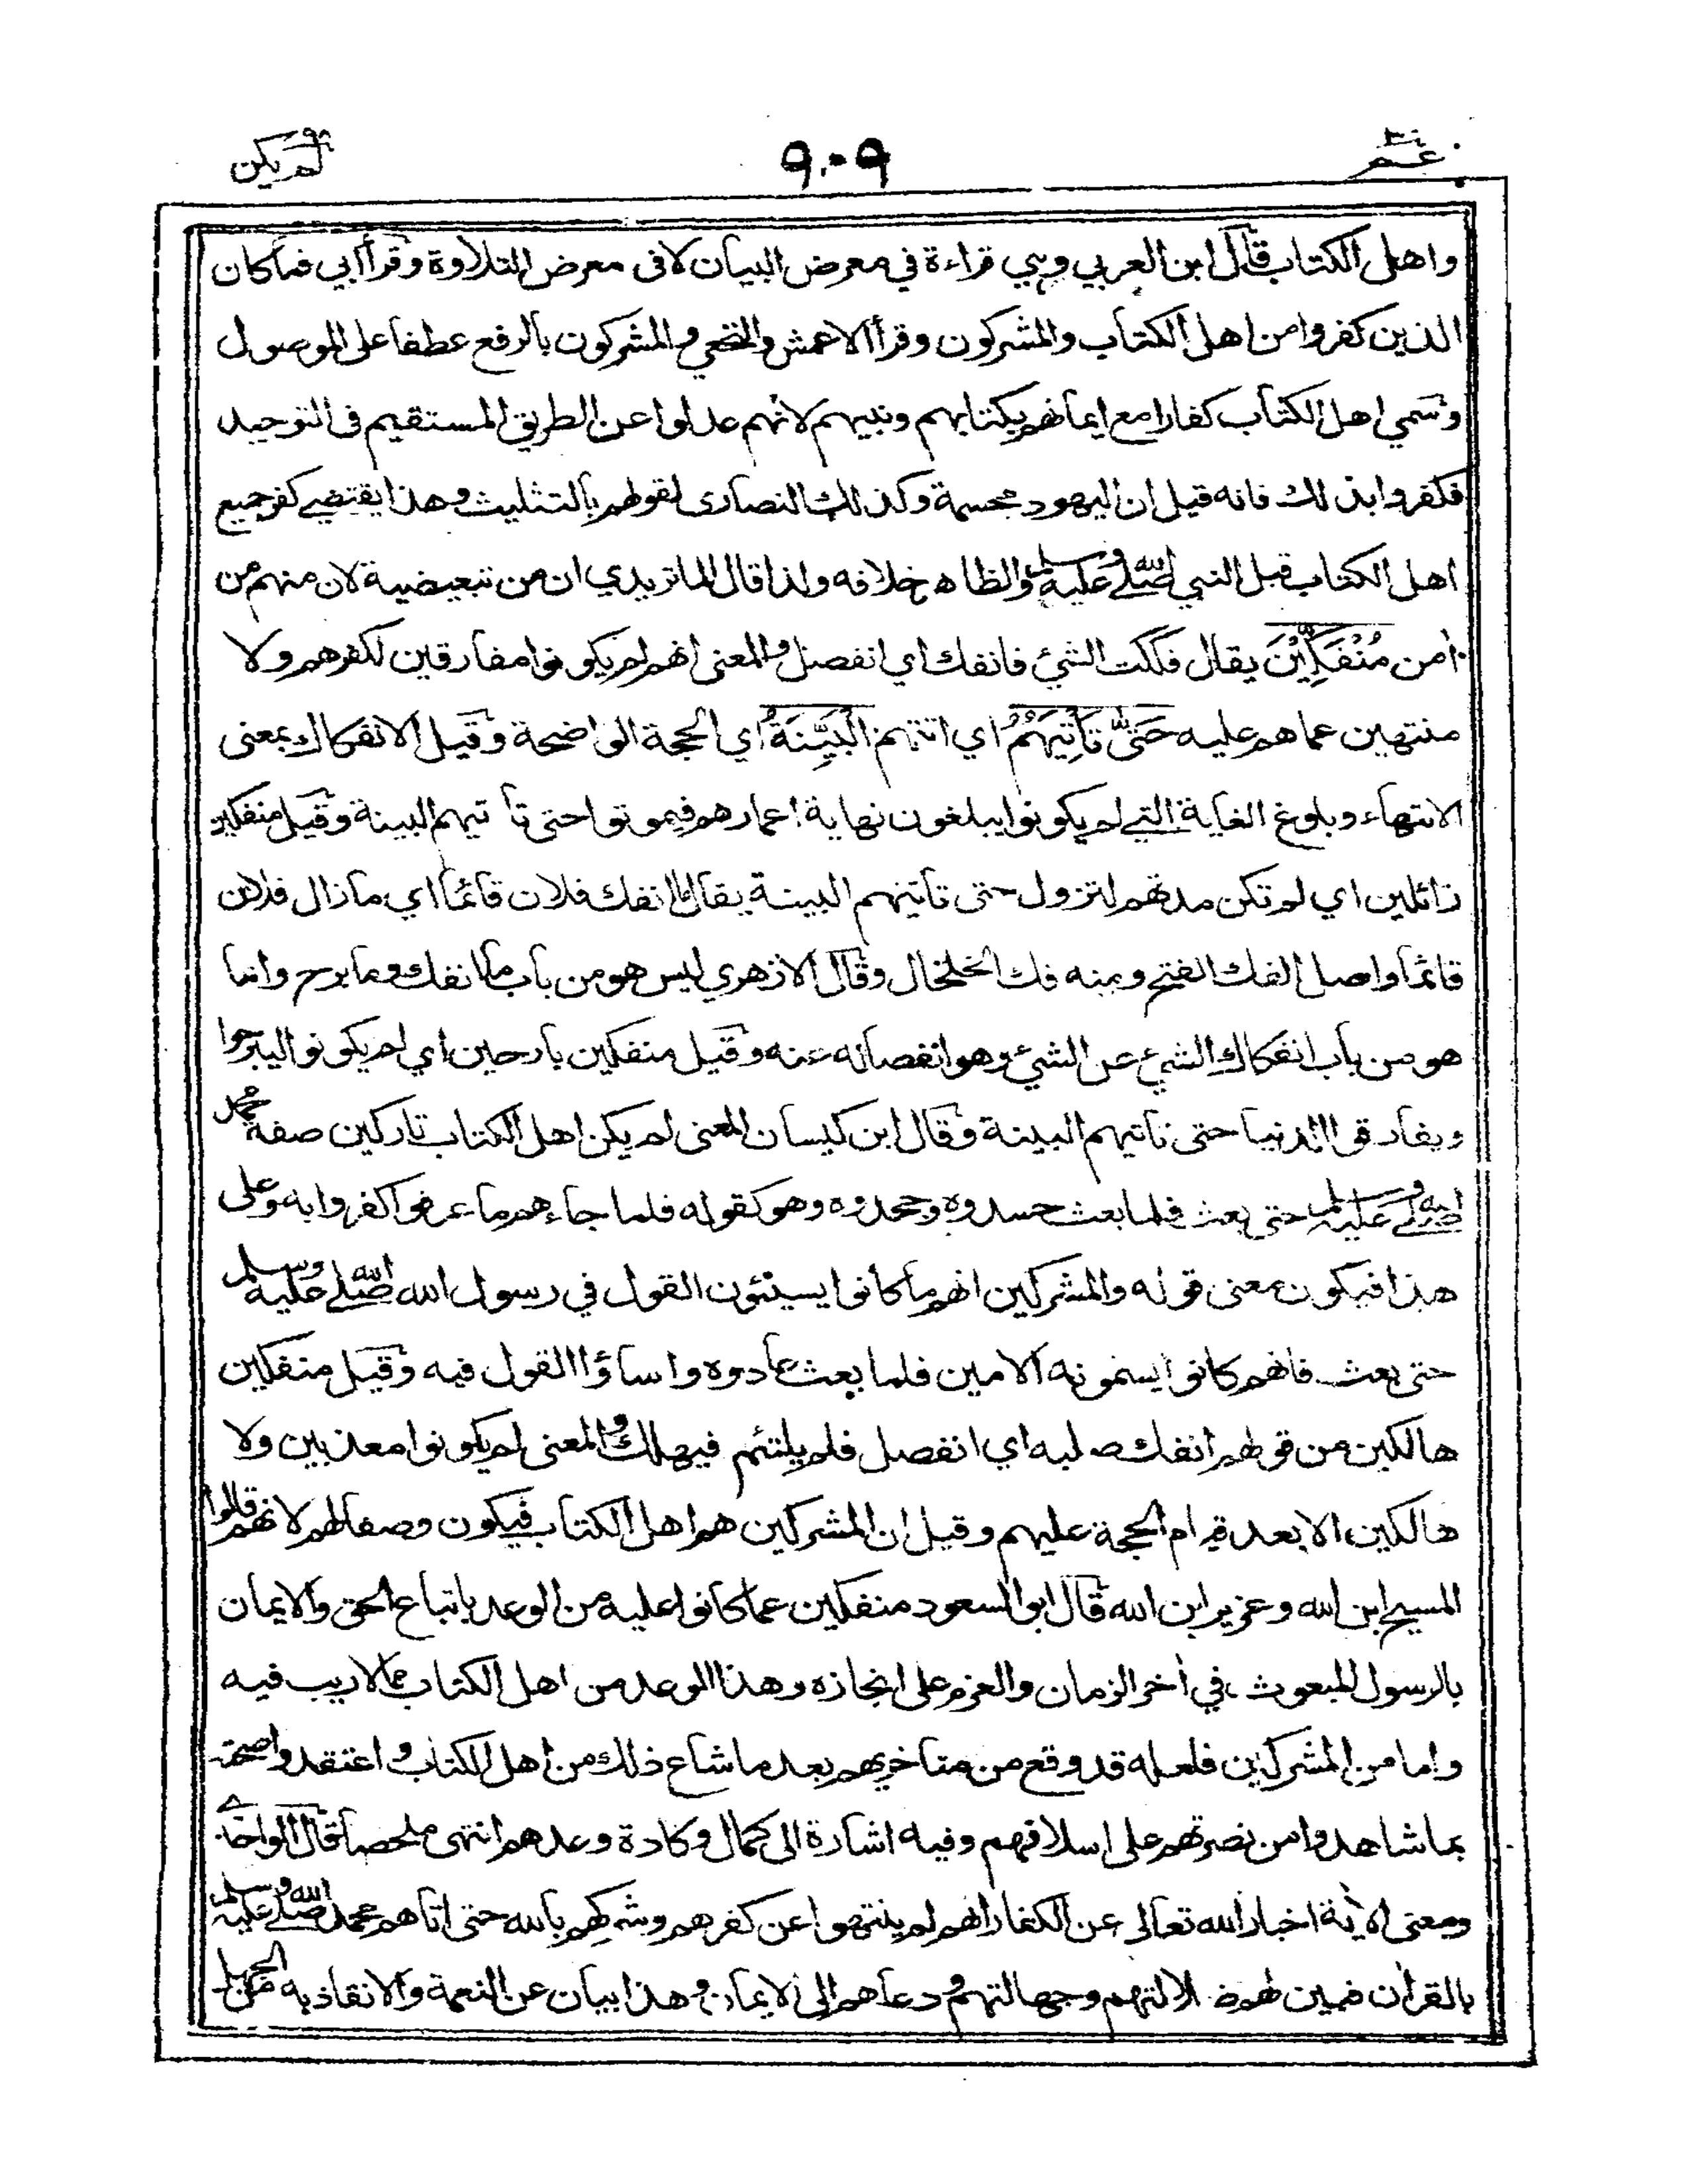 عم ٣٠
٩٠٩
لم يكن ٩٨
واهل الكتاب قال ابن العربي وهي قراءة في معرض البيان لا فى معرض التلاوة وقرأ أبي فما كان
الذين كفروا من اهل الكتاب والمشركون وقرأ الاعمش والنخعي والمشركون بالرفع عطفا على الموصول
وسمي اهل الكتاب كفارا مع ايمانهم بكتابهم ونبيهم لانهم عدلوا عن الطريق المستقيم فى التوحيد
فكفروا بذلك فانه قيل ان اليهود مجسمة وكذلك النصارى لقولهم بالتثليث وهذا يقتضي كفر جميع
اهل الكتاب قبل النبي صلى الله عليه وسلم والظاهر خلافه ولذا قال الماتريدي ان من تبعيضية لان منهم من
اٰمن مُنْفَكِّيْنَ يقال فككت الشيئ فانفك اي انفصل والمعنى انهم لم يكونوا مفارقين لكفرهم ولا
منتهين عما هم عليه حَتّٰى تَأْتِيَهُمُ اي اتتهم الْبَيِّنَةُ اي الحجة الواضحة وقيل الانفكاك بمعنى
الانتهاء وبلوغ الغاية التي لم يكونوا يبلغون نهاية اعمارهم فيموتوا حتى تأتيهم البينة وقيل منفكين
زائلين اي لم تكن مدتهم لتزول حتى تأتيهم البينة يقال ما انفك فلان قائما اي ما زال فلان
قائما واصل الفك الفتح ومنه فك الخلخال وقال الازهري ليس هو من باب ما انفك وما برح وانما
هو من باب انفكاك الشيئ عن الشيئ وهو انفصاله عنه وقيل منفكين بارحين اي لم يكونوا ليبرحوا
ويفارقوا الدنيا حتى تاتيهم البينة وقال ابن كيسان المعنى لم يكن اهل الكتاب تاركين صفة محمد
صلى الله عليه وسلم حتى بعث فلما بعث حسدوه وجحدوه وهو كقوله فلما جاءهم ما عرفوا كفروا به وعلى
هذا فيكون معنى قوله والمشركين انهم ما كانوا يسيئون القول في رسول الله صلى الله عليه وسلم
حتى بعث فانهم كانوا يسمونه الامين فلما بعث عادوه واساؤا القول فيه وقيل منفكين
هالكين من قولهم انفك صلبه اي انفصل فلم يلتئم فيهلك والمعنى لم يكونوا معذبين ولا
هالكين الا بعد قيام الحجة عليهم وقيل ان المشركين هم اهل الكتاب فيكون وصفا لهم لانهم قالوا
المسيح ابن الله وعزير ابن الله قال ابو السعود منفكين عما كانوا عليه من الوعد باتباع الحق والايمان
بالرسول المبعوث في اٰخر الزمان والعزم على انجازه وهذا الوعد من اهل الكتاب مما لا ريب فيه
واما من المشركين فلعله قد وقع من متاخريهم بعد ما شاع ذلك من اهل الكتاب واعتقدوا صحته
بما شاهدوا من نصرتهم على اسلافهم وفيه اشارة الى كمال وكادة وعدهم انتهى ملخصا قال الواحدي
ومعنى الاٰية اخبار الله تعالى عن الكفار انهم لم ينتهوا عن كفرهم وشركهم بالله حتى اتاهم محمد صلى الله عليه وسلم
بالقراٰن فبين لهم ضلالتهم وجهالتهم ودعاهم الى الايمان وهذا بيان عن النعمة والانقاذ به من الجهل